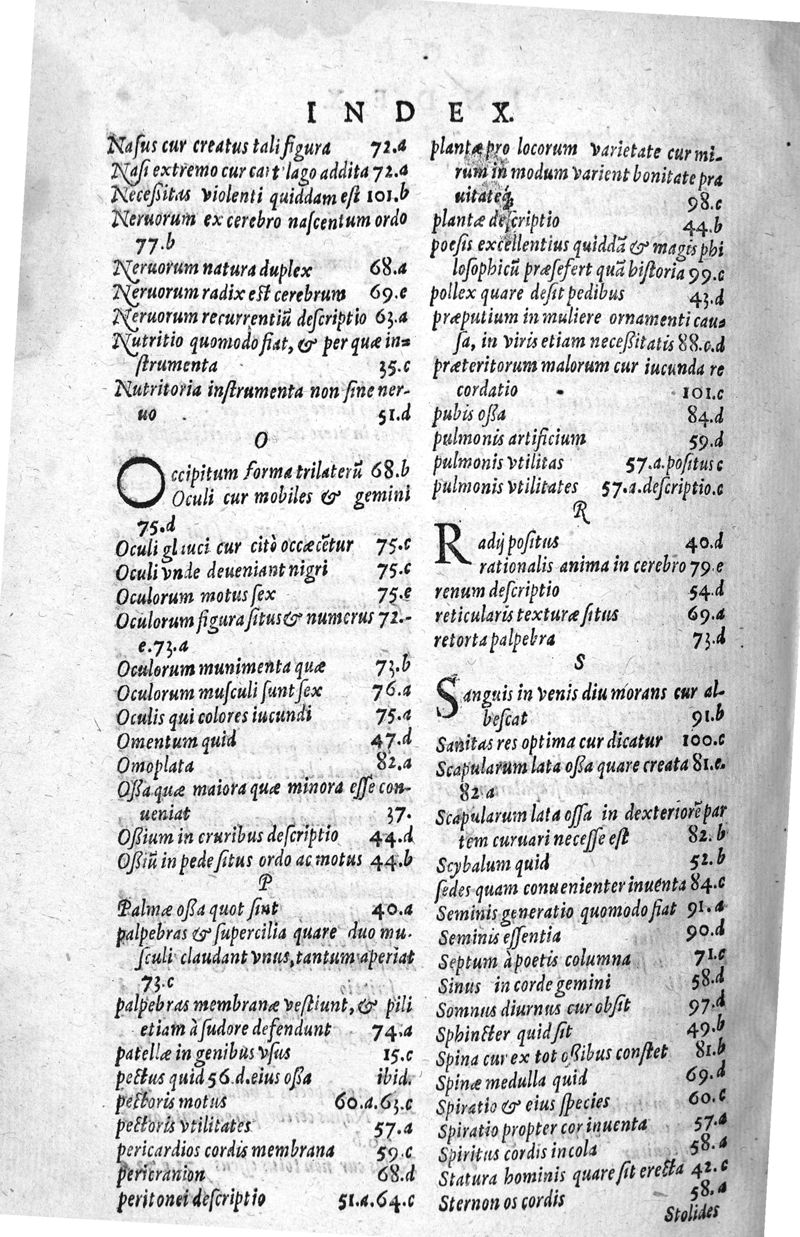 INDEX.
Nasus cur creatus tali figura 72.a
Nasi extremo cur cartilago addita 72.a
Neceſſitas violenti quiddam eſt 101.b
Neruorum ex cerebro naſcentum ordo
77.b
Neruorum natura duplex 68.a
Neruorum radix eſt cerebrum 69.e
Neruorum recurrentiū deſcriptio 63.a
Nutritio quomodo fiat, & per quæ in=
ſtrumenta 35.c
Nutritoria inſtrumenta non ſine ner-
uo 51.d
O
Occipitum forma trilaterū 68.b
Oculi cur mobiles & gemini
75.d
Oculi glauci cur citò occæcẽtur 75.c
Oculi vnde deueniant nigri 75.c
Oculorum motus ſex 75.e
Oculorum figura ſitus & numerus 72.-
e.73.a
Oculorum munimenta quæ 73.b
Oculorum muſculi ſunt ſex 76.a
Oculis qui colores iucundi 75.a
Omentum quid 47.d
Omoplata 82.a
Oſſa quæ maiora quæ minora eſſe con-
ueniat 37.
Oſſium in cruribus deſcriptio 44.d
Oſſiū in pede ſitus ordo ac motus 44.b
P
Palmæ oſſa quot ſint 40.a
palpebras & ſupercilia quare duo mu-
ſculi claudant vnus, tantum aperiat
73.c
palpebras membranæ veſtiunt, & pili
etiam à ſudore defendunt 74.a
patellæ in genibus vſus 15.c
pectus quid 56.d. eius oſſa ibid.
pectoris motus 60.a.63.c
pectoris vtilitates 57.a
pericardios cordis membrana 59.c
pericranion 68.d
peritonei deſcriptio 51.a.64.c
plantæ pro locorum varietate cur mi-
rum in modum varient bonitate pra
uitateq́; 98.c
plantæ deſcriptio 44.b
poeſis excellentius quiddā & magis phi
loſophicū præſefert quā hiſtoria 99.c
pollex quare deſit pedibus 43.d
præputium in muliere ornamenti cau=
ſa, in viris etiam neceſſitatis 88.c.d
præteritorum malorum cur iucunda re
cordatio 101.c
pubis oſſa 84.d
pulmonis artificium 59.d
pulmonis vtilitas 57.a.poſitus c
pulmonis vtilitates 57.a.deſcriptio.c
R
Radij poſitus 40.d
rationalis anima in cerebro 79.e
renum deſcriptio 54.d
reticularis texturæ ſitus 69.a
retorta palpebra 73.d
S
Sanguis in venis diu morans cur al-
beſcat 91.b
Sanitas res optima cur dicatur 100.c
Scapularum lata oſſa quare creata 81.e.
82.a
Scapularum lata oſſa in dexteriorē par
tem curuari neceſſe eſt 82.b
Scybalum quid 52.b
ſedes quam conuenienter inuenta 84.c
Seminis generatio quomodo fiat 91.a
Seminis eſſentia 90.d
Septum à poetis columna 71.c
Sinus in corde gemini 58.d
Somnus diurnus cur obſit 97.d
Sphincter quid ſit 49.b
Spina cur ex tot oſſibus conſtet 81.b
Spinæ medulla quid 69.d
Spiratio & eius ſpecies 60.c
Spiratio propter cor inuenta 57.a
Spiritus cordis incola 58.a
Statura hominis quare ſit erecta 42.c
Sternon os cordis 58.a
Stolides